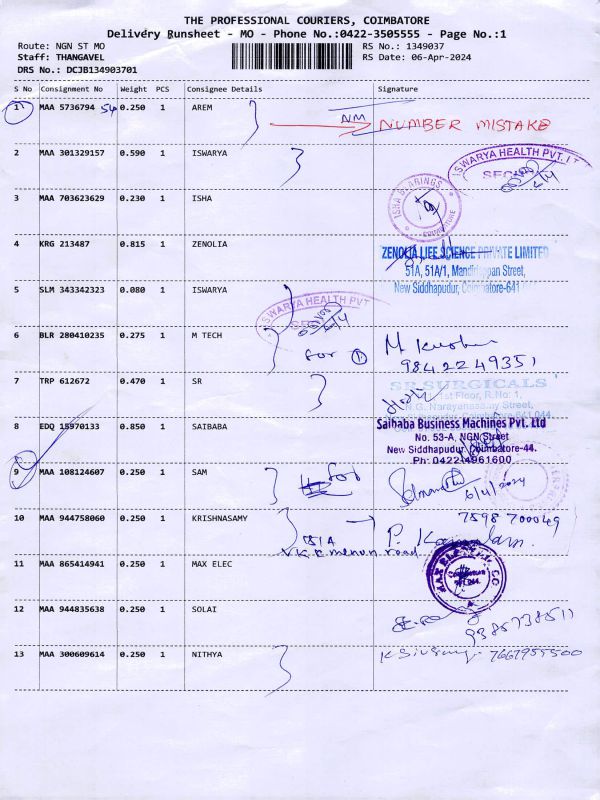 THE PROFESSIONAL COURIERS, COIMBATORE
Delivery Runsheet - MO - Phone No.:0422-3505555 - Page No.:1
Route: NGN ST MO
RS No.: 1349037
Staff: THANGAVEL
RS Date: 06-Apr-2024
DRS No.: DCJB134903701
S No Consignment No Weight PCS Consignee Details Signature
1 MAA 5736794 54 0.250 1 AREM
NM NUMBER MISTAKE
2 MAA 301329157 0.590 1 ISWARYA
ISWARYA HEALTH PVT. LT
3 MAA 703623629 0.230 1 ISHA
ISHA BEARINGS
COIMBATORE
4 KRG 213487 0.815 1 ZENOLIA
ZENOLIA LIFE SCIENCE PRIVATE LIMITED
51A, 51A/1, Street,
New Siddhapudur, Coimbatore-641
5 SLM 343342323 0.080 1 ISWARYA
ISWARYA HEALTH PVT
6 BLR 280410235 0.275 1 M TECH
for 1 M
9842249351
7 TRP 612672 0.470 1 SR
SR SURGICALS
1st Floor, R.No: 1,
N.G. Narayanasamy Street,
8 EDQ 15970133 0.850 1 SAIBABA
Saibaba Business Machines Pvt. Ltd
No. 53-A, NGN Street
New Siddhapudur, Coimbatore-44.
Ph: 0422-4961600
9 MAA 108124607 0.250 1 SAM
for
6/4/2024
7598700049
10 MAA 944758060 0.250 1 KRISHNASAMY
P.
V.K.K menon road
11 MAA 865414941 0.250 1 MAX ELEC
12 MAA 944835638 0.250 1 SOLAI
9385738511
13 MAA 300609614 0.250 1 NITHYA
7667955500